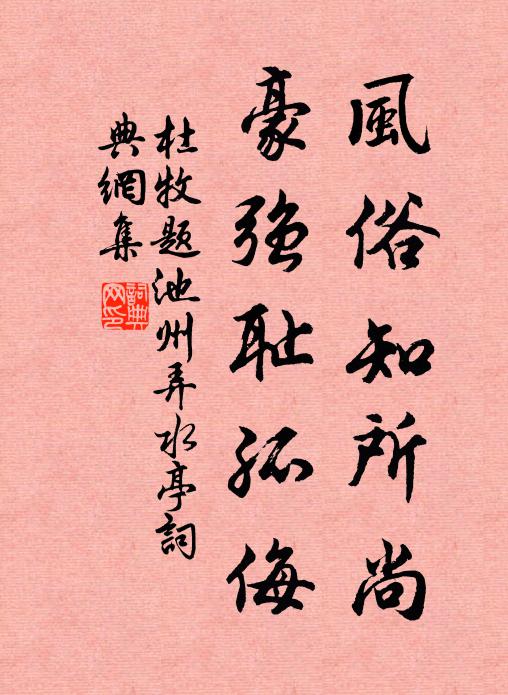 風俗知所尚
豪強耻孤侮
杜牧題池州弄水亭詞
典網集
詞典網印